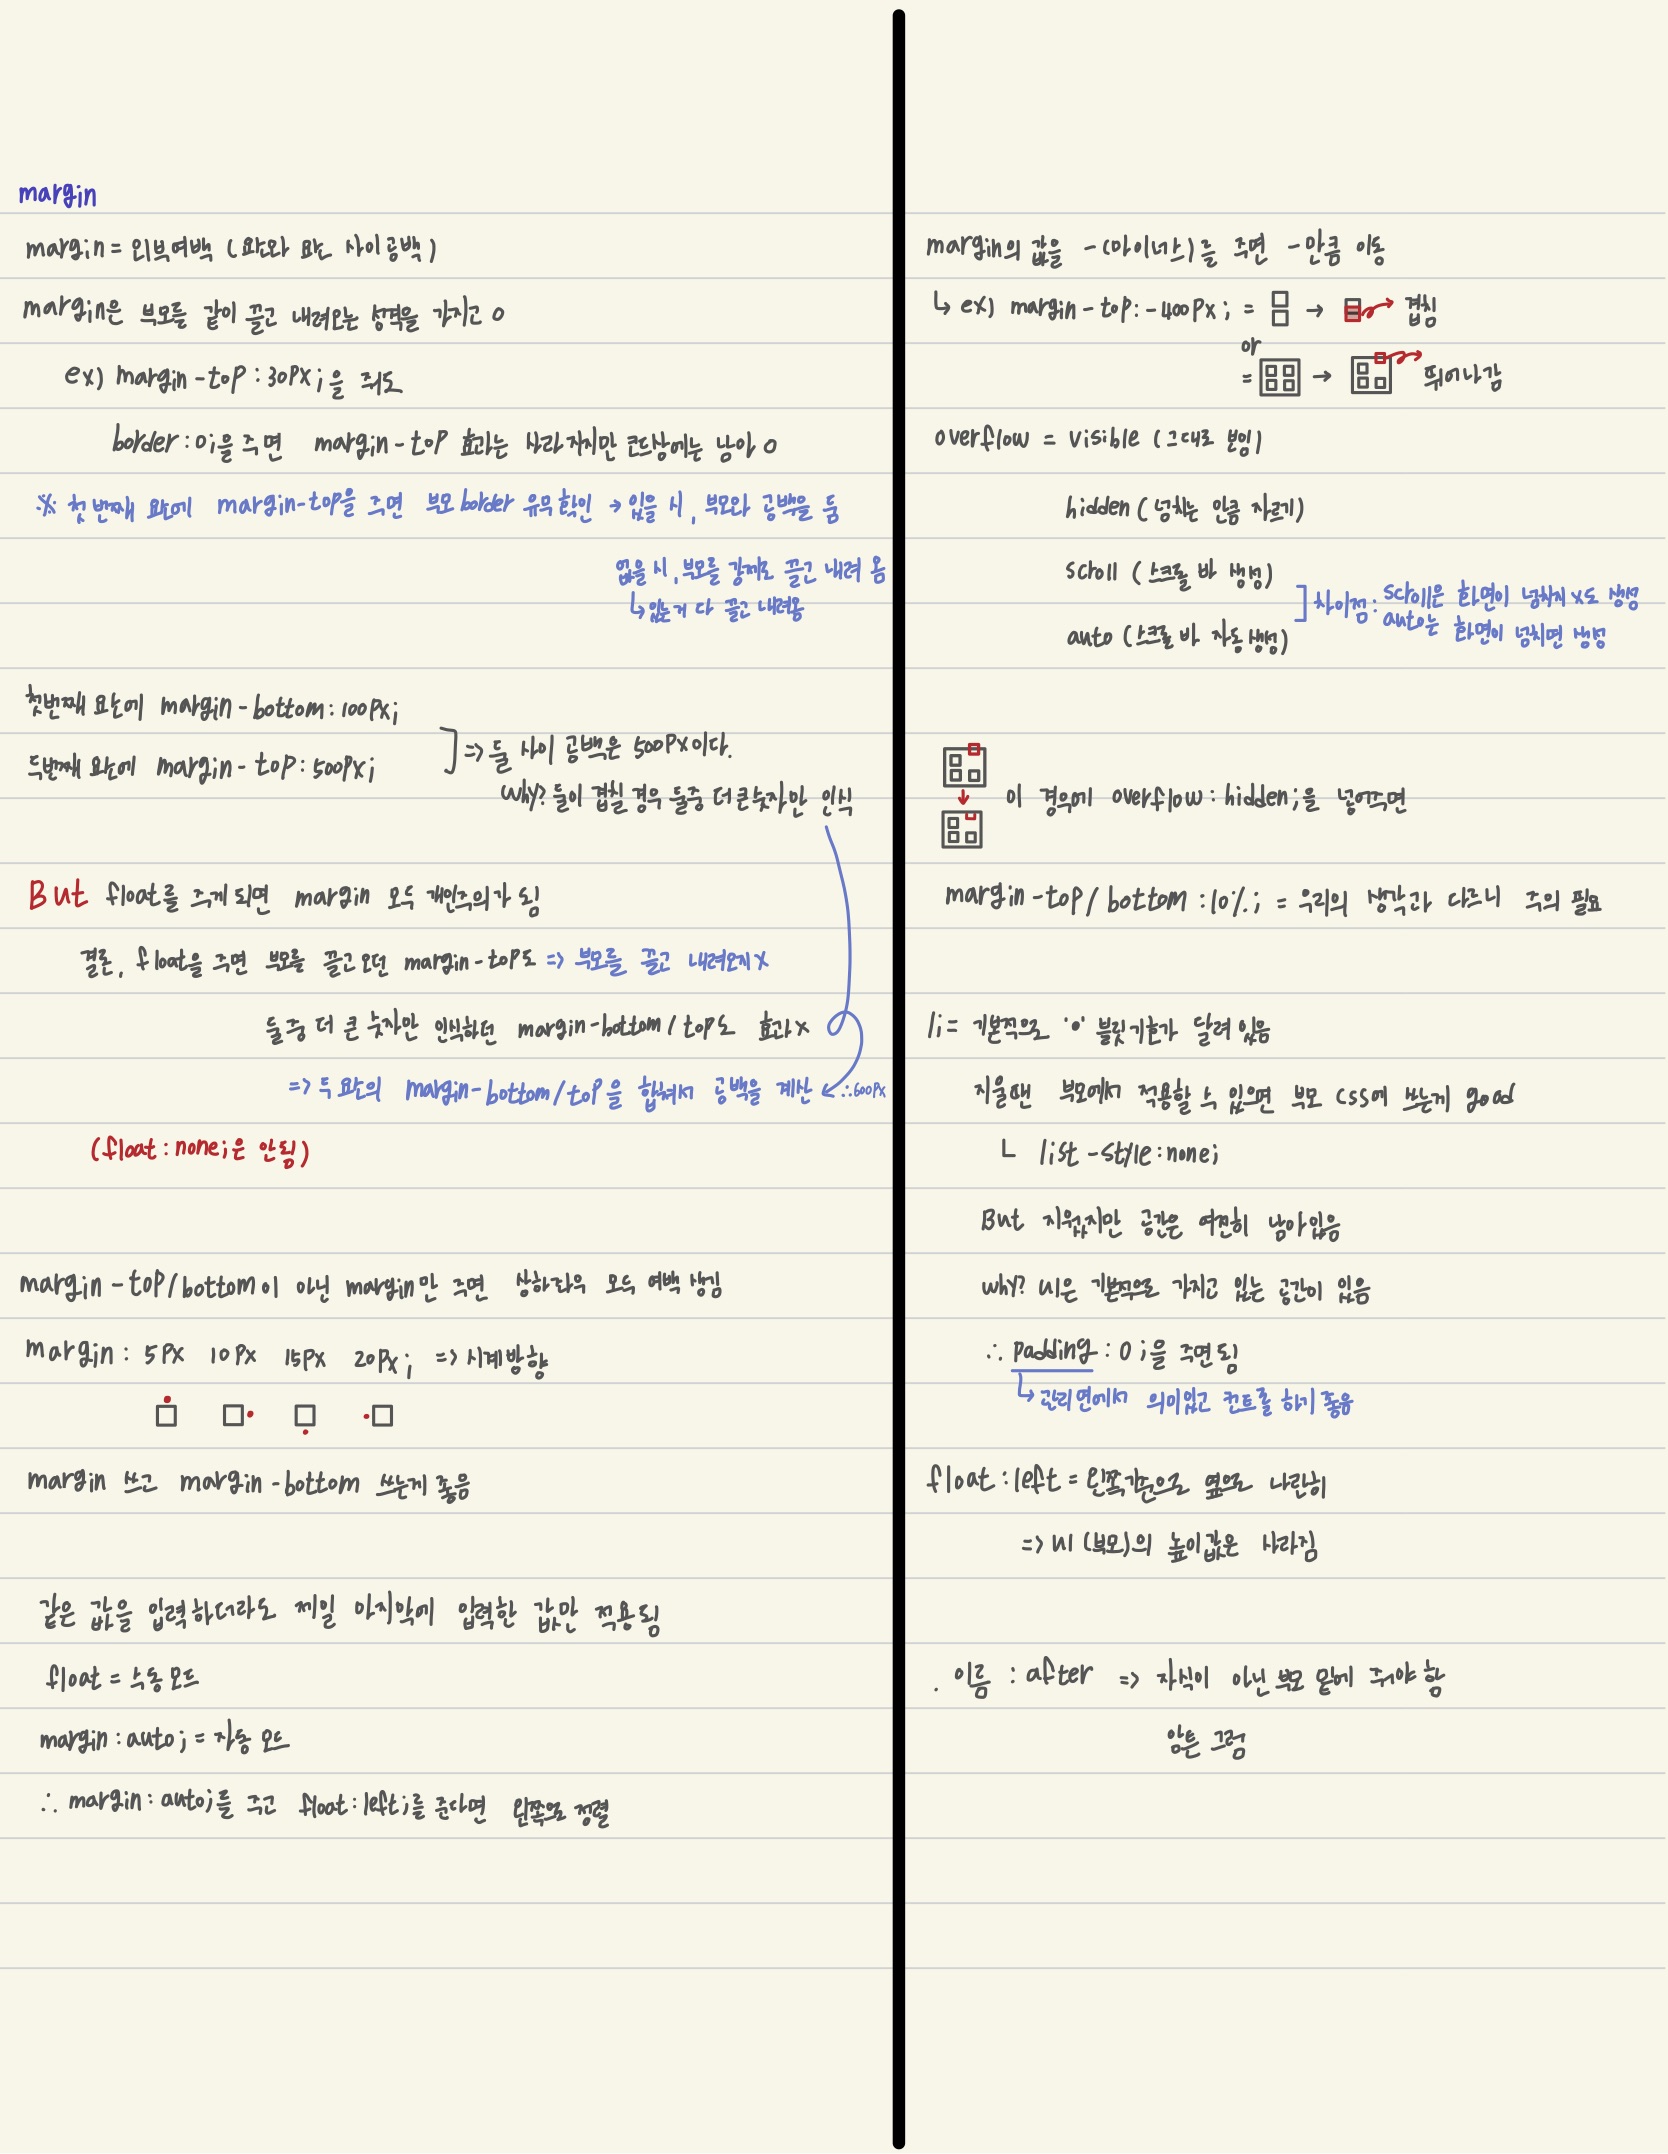 margin
margin = 외부여백 (요소와 요소 사이 공백)
margin은 부모를 같이 끌고 내려오는 성격을 가지고 o
ex) margin-top : 30px ; 을 줘도
border : 0 ; 을 주면 margin-top 효과는 사라지지만 코드상에는 남아 o
※ 첫번째 요소에 margin-top을 주면 부모 border 유무 확인 → 있을 시, 부모와 공백을 둠
없을 시, 부모를 강제로 끌고 내려 옴
↳ 있는거 다 끌고 내려옴
첫번째 요소에 margin-bottom : 100px ;
두번째 요소에 margin-top : 500px ;
] => 둘 사이 공백은 500px이다.
why? 둘이 겹칠 경우 둘중 더 큰숫자만 인식
But float를 주게되면 margin 모두 개인주의가 됨
결론, float을 주면 부모를 끌고오던 margin-top도 => 부모를 끌고 내려오지 x
둘중 더 큰 숫자만 인식하던 margin-bottom/top도 효과 x
=> 두 요소의 margin-bottom/top을 합쳐서 공백을 계산 ← ∴600px
(float : none ; 은 안됨)
margin-top/bottom이 아닌 margin만 주면 상하좌우 모두 여백 생김
margin : 5px 10px 15px 20px ; => 시계방향
margin 쓰고 margin-bottom 쓰는게 좋음
같은 값을 입력하더라도 제일 마지막에 입력한 값만 적용됨
float = 수동모드
margin : auto ; = 자동 모드
∴ margin : auto ; 를 주고 float : left ; 를 준다면 왼쪽으로 정렬
margin의 값을 -(마이너스)를 주면 -만큼 이동
↳ ex) margin-top : -400px ; = → 겹침
or
= → 튀어나감
overflow = visible (그대로 보임)
hidden (넘치는 만큼 자르기)
scroll (스크롤 바 생성)
auto (스크롤 바 자동생성)
] 차이점 : scroll은 화면이 넘치지 x도 생성
auto는 화면이 넘치면 생성
이 경우에 overflow : hidden ; 을 넣어주면
margin-top/bottom : 10% ; = 우리의 생각과 다르니 주의 필요
li = 기본적으로 'o' 블릿기호가 달려있음
지울땐 부모에서 적용할 수 있으면 부모 css에 쓰는게 good
ㄴ list-style : none ;
But 지웠지만 공간은 여전히 남아있음
why? ul은 기본적으로 가지고 있는 공간이 있음
∴ padding : 0 ; 을 주면됨
↳ 관리면에서 의미있고 컨트롤 하기 좋음
float : left = 왼쪽기준으로 옆으로 나란히
=> ul (부모)의 높이값은 사라짐
. 이름 : after => 자식이 아닌 부모 밑에 줘야 함
암튼 그럼